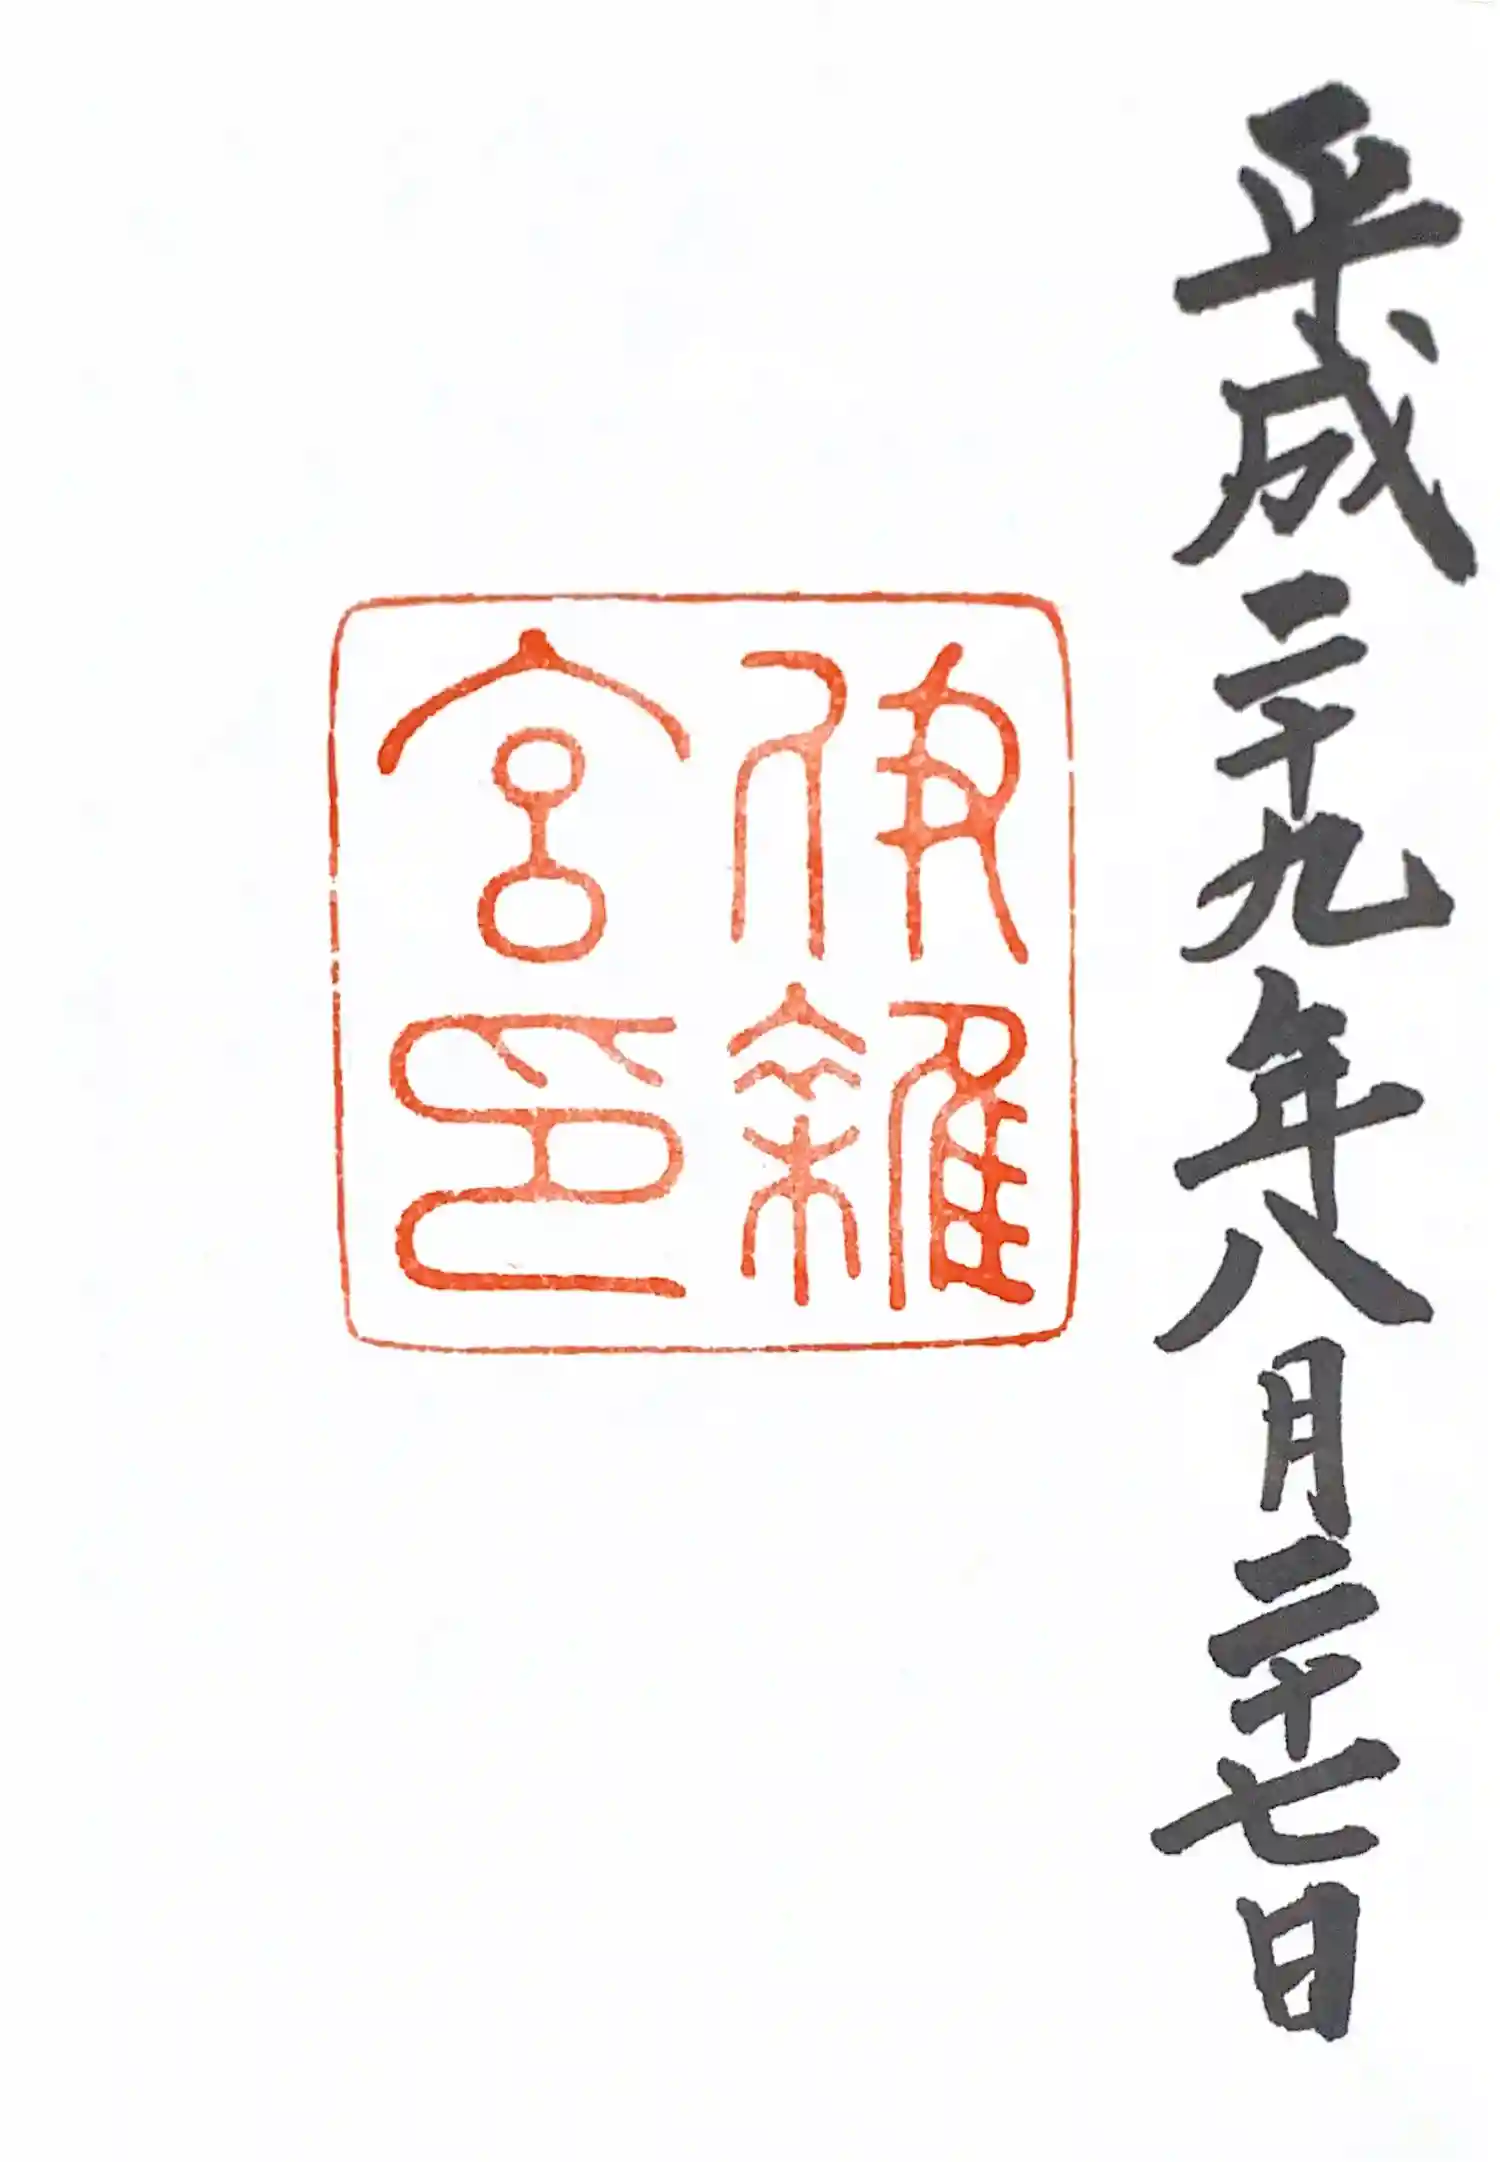 平成二十九年八月二十七日
伊雜
宮印